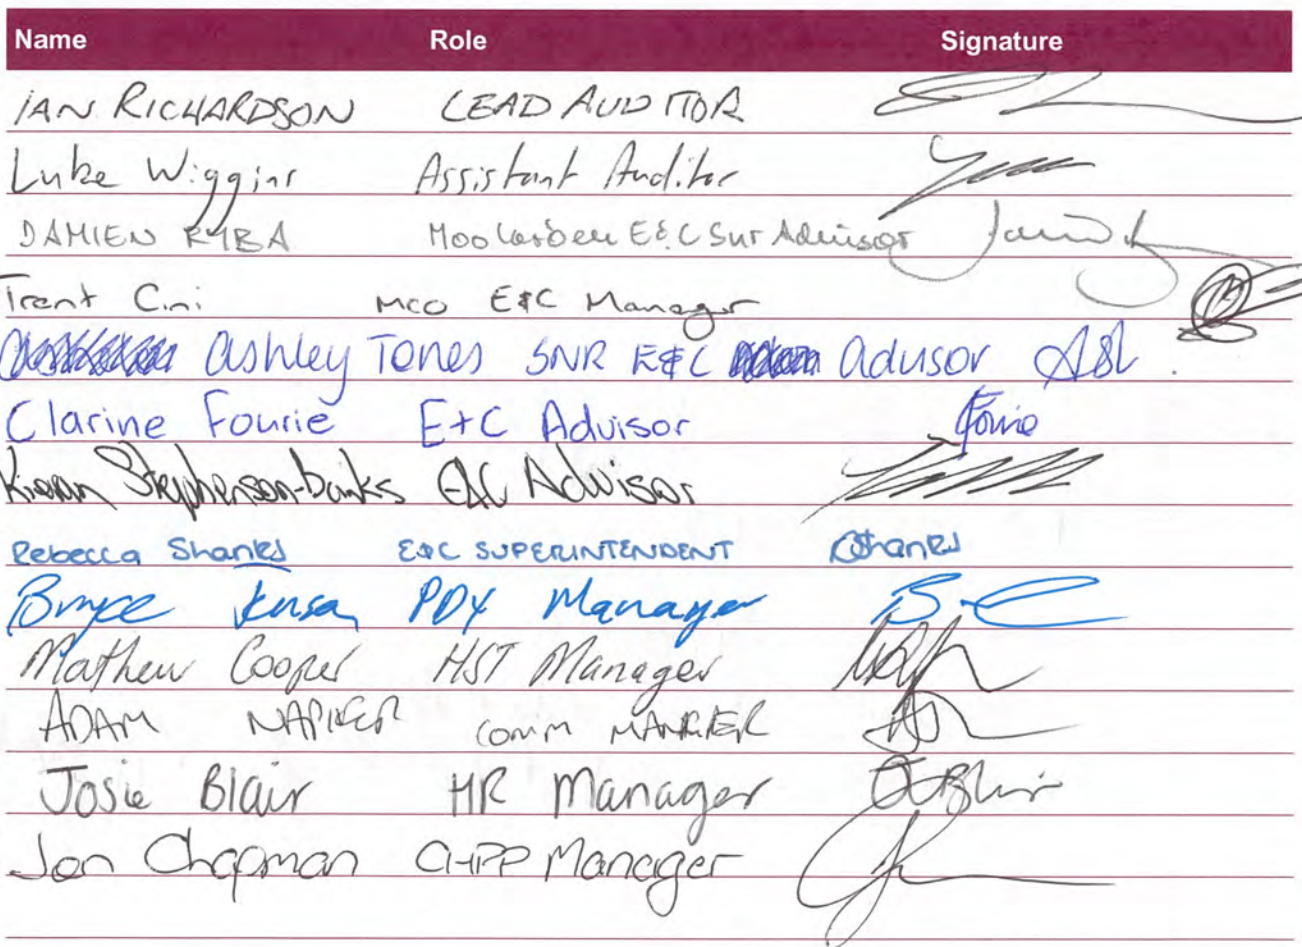 Name Role Signature
IAN RICHARDSON LEAD AUDITOR
Luke Wiggins Assistant Auditor
DAMIEN RYBA Moolarben E&C Sur Advisor
Trent Cini MCO E&C Manager
Ashley Tones SNR E&C advisor
Clarine Fourie E+C Advisor Fourie
Kieran Stephenson-banks E&C Advisor
Rebecca Shanks E&C SUPERINTENDENT RShanks
Bryce Manager
Mathew Cooper HST Manager
ADAM NAPIER comm MANAGER
Josie Blair HR Manager JBlair
Jon Chapman CHPP Manager